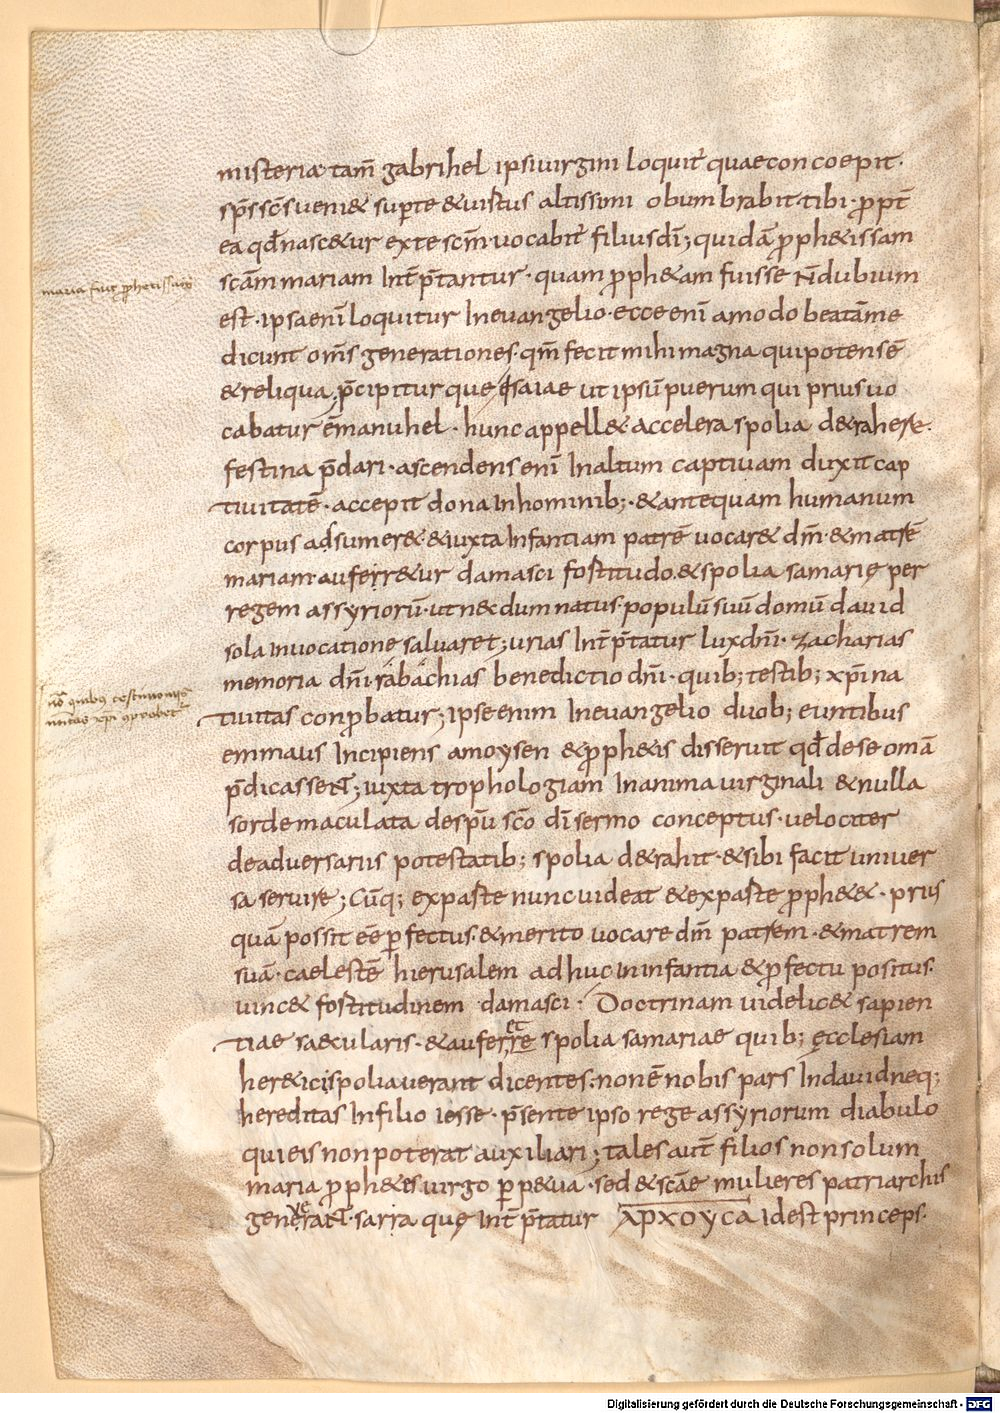 misteria tam̄ gabrihel ipsi uirgini loquit̄ quae concoepit·
sp̄s sc̄s ueni& sup̱ te & uirtus altissimi obumbrabit tibi· ꝓpt̄
ea qd̄ nasc&ur ex te sc̄m uocabit̄ filius dī; quidā ꝓph&issam
maria fuit ꝓphetissa
scām mariam Int̄p̄tantur· quam ꝓph&am fuisse N̄ dubium
est· ipsa enī loquitur In euangelio· ecce enī amodo beatā me
dicunt om̄s generationes· qm̄ fecit mihi magna qui potens ē
& reliqua; p̄cipitur que esaiae ut ipsū puerum qui prius uo
cabatur ēmanuhel· hunc appell& accelera spolia d&rahere·
festina p̄dari· ascendens enī In altum captiuam duxit cap
tiuitatē· accepit dona In hominib;· & antequam humanum
corpus adsumer& & iuxta Infantiam patrē uocar& dm̄· & matrē
mariam· auferr&ur damasci fortitudo & spolia samarię per
regem assyriorū· ut n&dum natus· populū suū domū dauid
sola Inuocatione saluaret; urias Int̄p̄tatur lux dn̄i· zacharias
memoria dn̄i rabachias benedictio dn̄i· quib; testib; xp̄i na
nō quibus testimoniis
tiuitas conꝓbatur; ipse enim In euangelio duob; euntibus
natiuitas xp̄i ꝓbatur
emmaus Incipiens amoysen & ꝓph&is disseruit qd̄ de se omā
p̄dicassent; iuxta trophologiam In anima uirginali & nulla
sorde maculata de sp̄u sc̄o dī sermo conceptus· uelociter
de aduersariis potestatib; spolia d&rahit· & sibi facit uniuer
sa seruire; Cūq; ex paste nunc uideat & ex paste ꝓph&& · prius
quā possit ēē ꝑfectus· & merito uocare dm̄ patrem· & matrem
suā· caelestē hierusalem adhuc In infantia & ꝓfectu positus·
uinc& fortitudinem damasci· Doctrinam uidelic& sapien
tiae saecularis· & auferre et spolia samariae quib; ęcclesiam
her&ici spoliauerant dicentes: non ē nobis pars In dauid neq;
hereditas In filio iesse· p̄sente ipso rege assyriorum diabulo
qui eis non poterat auxiliari; tales aut̄ filios non solum
maria ꝓph&es uirgo ꝑp&ua· sed & scāe mulieres patriarchis
generant· sarra quę Int̄p̄tatur ΑΡΧΟΥCΑ Idest princeps·
Digitalisierung gefördert durch die Deutsche Forschungsgemeinschaft - DFG